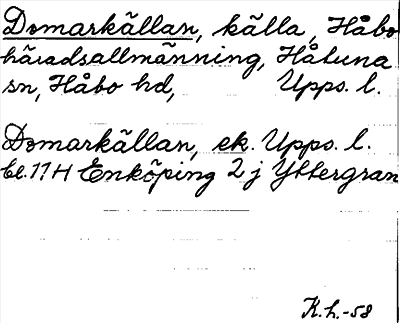 Domarkällan, källa, Håbo
häradsallmänning, Håtuna
sn, Håbo hd, Upps. l.
Domarkällan, ek. Upps. l.
bl. 11H Enköping 2 j Yttergran
K.h.-58